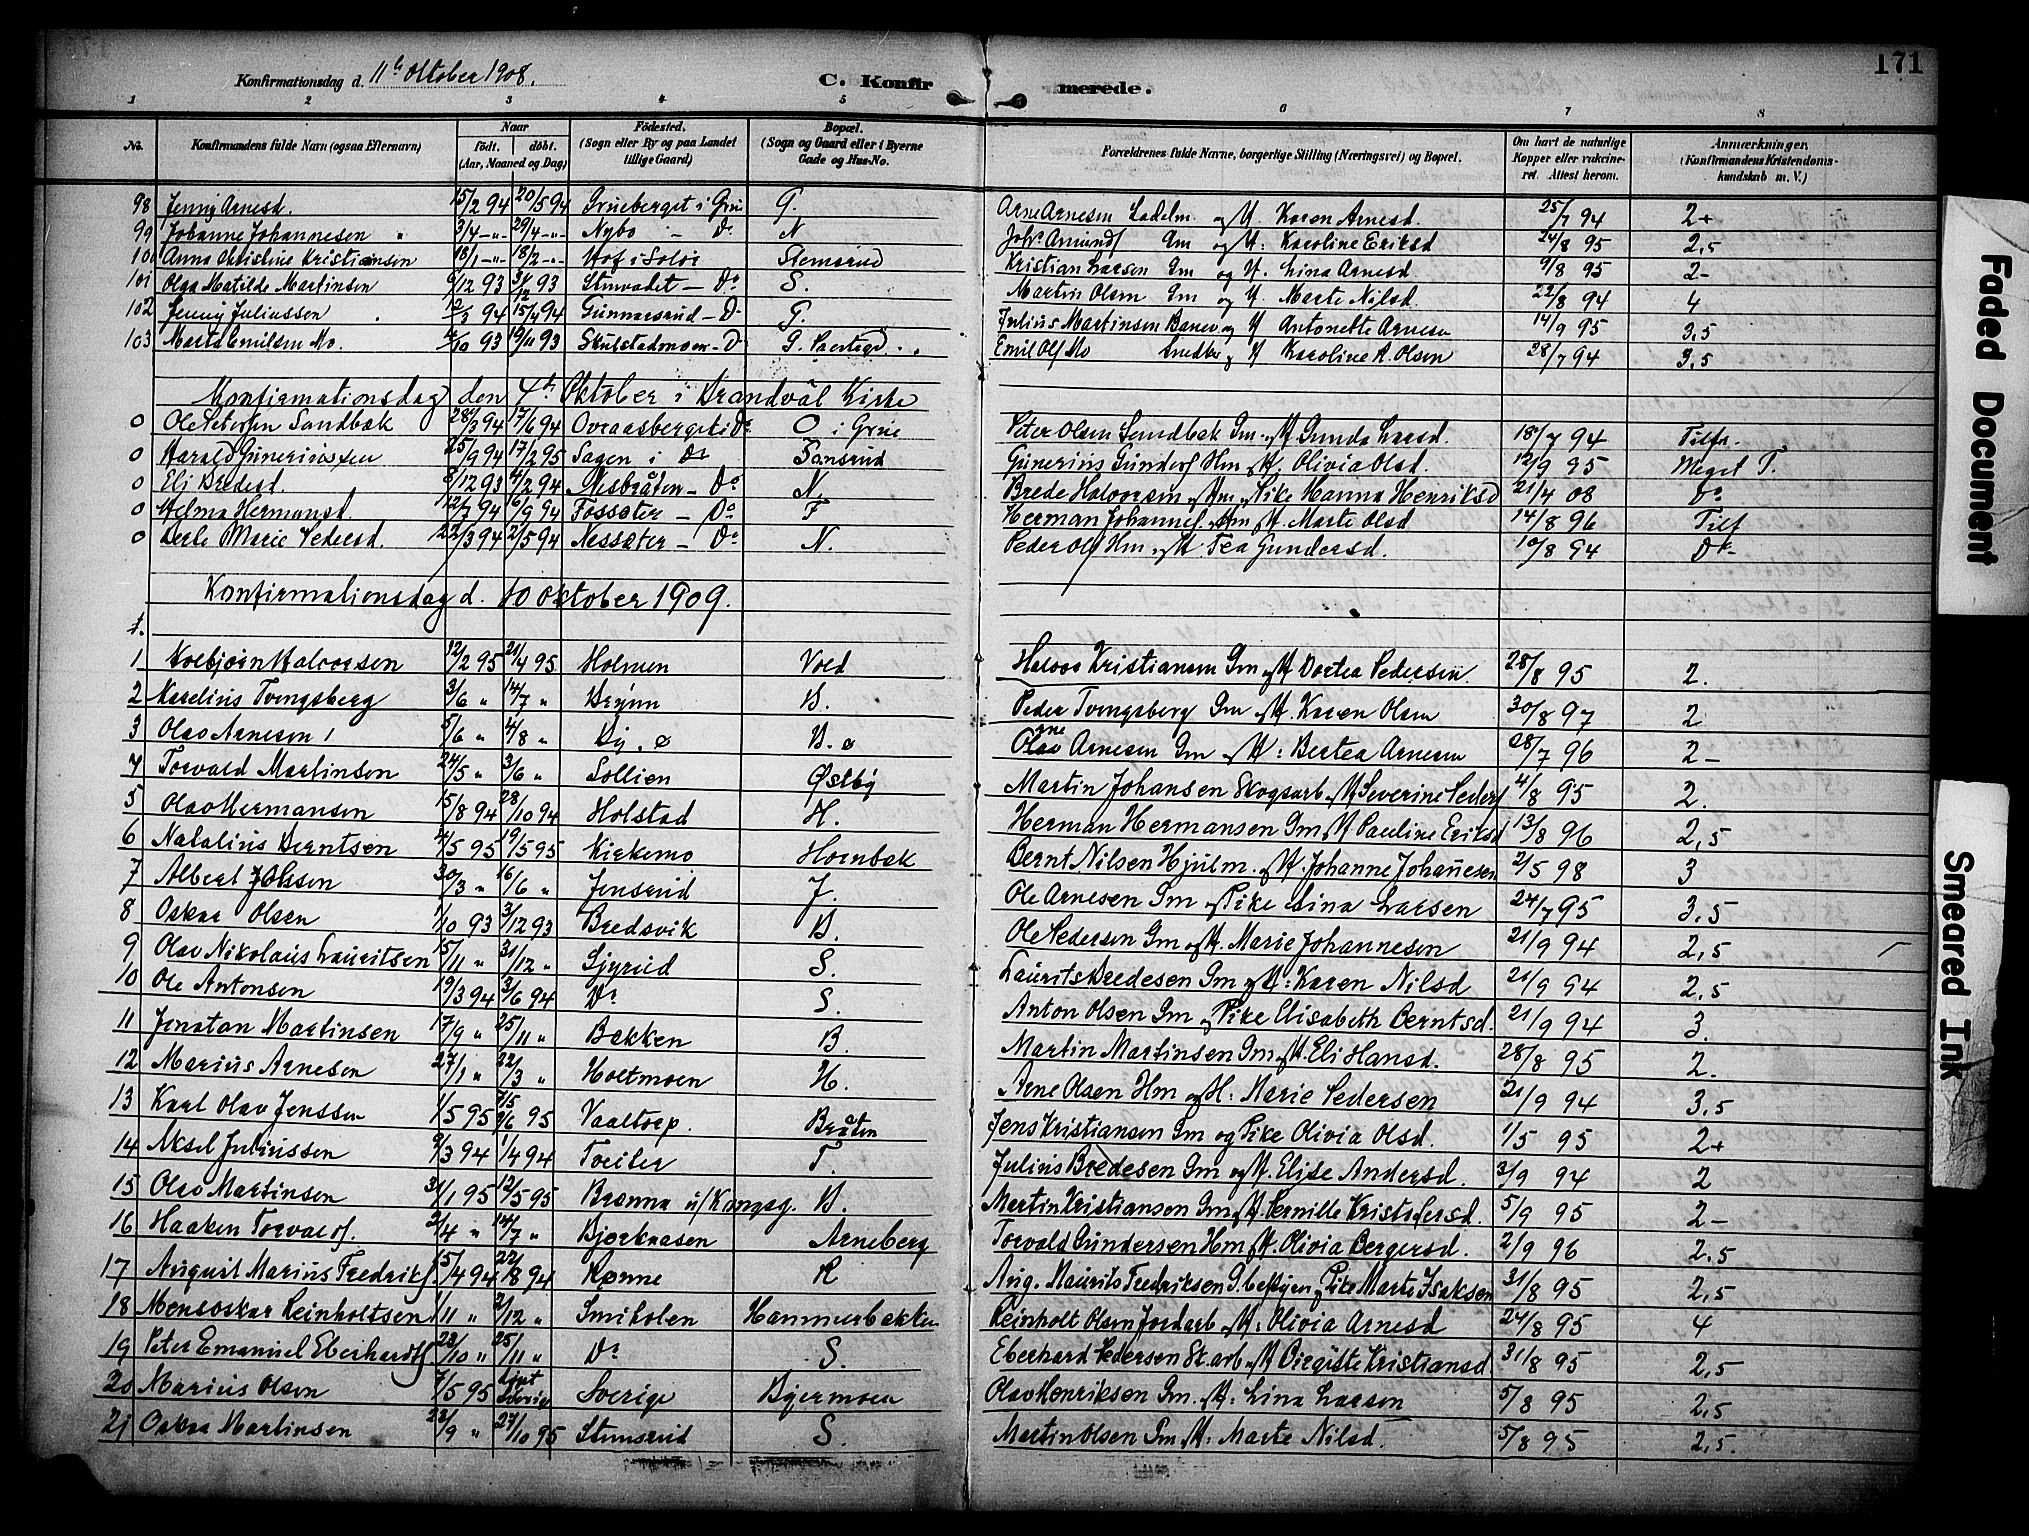 171
Konfirmationsdag d. 11te Oktober 1908. C. Konfirmerede.
1 2 3 4 5 6 7 8
No. Konfirmandens fulde Navn (ogsaa Efternavn) Naar født. døbt. (Aar, Maaned og Dag) Fødested. (Sogn eller By og paa Landet tillige Gaard) Bopæl. (Sogn og Gaard eller i Byerne Gade og Hus-No. Forældrenes fulde Navne, borgerlige Stilling (Næringsvei) og Bopæl. Om havt de naturlige Kopper eller vaccineret. Attest herom. Anmærkninger. (Konfirmandens Kristendomskundskab m. V.)
98 Jenny Arnesd. 15/2 94 20/5 94 Grueberget i Grue G. Arne Arnesen Ladelm. og H. Karen Arnesd. 25/7 94 2+
99 Johanne Johannesen 3/4 -"- 29/4 -"- Nybo - Do N Johs Amunds Gm og H: Karoline Eriksd 24/8 95 2,5
100 Anna Christine Kristiansen 18/1 -"- 18/2 -"- Hof i Solør Stemsrud Kristian Larsen Gm og H. Lina Arnesd. 9/8 95 2-
101 Olga Matilde Martinsen 6/12 93 31/12 93 - Do S. Martin Olsen Gm og H. Marte Nilsd. 22/8 94 4
102 Jenny Juliussen 12/3 94 15/4 94 Gunnarsrud - Do G. Julius Martinsen og H Antonette Arnesen 14/9 95 3,5
103 Marta Emilsen Mo. /10 93 19/11 93 Skulstadmoen - D G. Emil Ols Mo Smedker og H Karoline A. Olsen 28/7 94 3,5
Konfirmationsdag den 4de Oktober i Brandvål Kirke
0 Ole Petersen Sandbæk 28/3 94 17/6 94 Overaasberget i Do O i Grue Peter Olsen Sandbæk Gm. og H Gunda Larsd. 18/7 94 Tilfr.
0 Harald Gunerius sen 25/9 94 17/2 95 Sagen i Do Gunerius Gunders Hm og H. Olivia Olsd. 12/9 95 Meget T.
0 Eli Bredesd. 8/12 93 4/2 94 Nesbråten - Do N. Brede Halvorsen Hm og Pike Hanna Henriksd 21/4 08 Do
0 Helma Hermansd. 12/7 94 16/9 94 Fossæter - Do F Herman Johannes Hm og H. Marte Olsd 14/8 96 Tilf
0 Berle Marie Pedersd. 22/3 94 2/5 94 Næssæter - Do N. Peder Ols Hm og H Tea Gundersd. 10/8 94 Do-
Konfirmationsdag d. 10 Oktober 1909.
1.
1 Torbjørn Halvorsen 12/2 95 21/4 95 Holmen Vold Halvor Kristiansen Gm og H Dortea Pedersen 28/8 95 2.
2 Karelius Tvengsberg 3/6 " 14/7 " Brynn B. Peder Tvengsberg Gm og H. Karen Olsen 30/8 97 2
3 Olav Arnesen 5/6 " 4/8 " By. ø B. ø Olav Arne Arnesen Gm og H: Bertea Arnesen 28/7 96 2-
4 Torvald Martinsen 24/5 " 3/6 " Lollien Østby Martin Johansen Skogsarb. og H Severine Peders 4/8 95 2.
5 Olav Hermansen 15/8 94 28/10 94 Holstad H. Herman Hermansen Gm og H Pauline Eriksd 13/8 96 2,5
6 Natalius Berntsen 4/5 95 19/5 95 Kirkemo Hornbæk Bernt Nilsen Hjulm. og H. Johanne Johannesen 2/5 98 3
7 Albert Olssen 30/3 " 16/6 " Jensrud J. Ole Arnesen Gm og Pike Lina Larsen 24/7 95 3,5
8 Oskar Olsen 1/10 93 3/12 93 Bredsvik B. Ole Pedersen Gm og H. Marie Johannesen 21/9 94 2,5
9 Olav Nikolaus Lauritsen 15/11 " 31/12 " Sjyrud S. Laurits Bredesen Gm og H: Karen Nilsd 21/9 94 2,5
10 Ole Antonsen 19/3 94 3/6 94 Do S. Anton Olsen Gm og Pike Elisabeth Berntsd. 21/9 94 3.
11 Jonatan Martinsen 17/9 " 25/11 " Bakken B. Martin Martinsen Gm og H. Eli Hansd. 28/8 95 2.
12 Marius Arnesen 27/1 " 22/3 " Holtmoen H. Arne Olsen Hm og H: Marie Pedersen 21/9 94 3,5
13 Karl Olav Jenssen 1/5 95 9/6 95 Vaaltorp. Bråten Jens Kristiansen Gm og Pike Olivia Olsd. 1/5 95 2+
14 Aksel Juliussen 9/3 94 1/4 94 Tveiter T. Julius Bredesen Gm og H. Elise Andersd. 3/9 94 2
15 Olav Martinsen 31/1 95 12/5 95 Brænna u/Kongsg. B. Martin Kristiansen Gm og H. Pernille Kristofersd. 5/9 95 2-
16 Haaken Torvalds. 2/4 " 14/7 " Bjørknæsen Arneberg Torvald Gundersen Hm og H. Olivia Bergersd. 2/9 96 2,5
17 August Marius Fredriks. 15/4 94 22/8 94 Rønne R Aug. Maurits Fredriksen G. og Pike Marte Isaksen 31/8 95 2,5
18 Mensoskar Reinholtsen 1/11 " 2/12 " Smikolen Hammerbakken Reinholt Olsen Jordarb og H: Olivia Arnesd 24/8 95 4
19 Peter Emanuel Eberhardts. 23/10 " 25/11 " Do S. Eberhard Pedersen Sk. arb og H Birgitte Kristiansd. 31/8 95 2,5
20 Marius Olsen 7/5 95 Sverige Bjermoen Olav Henriksen Gm. og H. Lina Larsen 5/8 95 2,5
21 Oskar Martinsen 23/9 " 27/10 95 Stemsrud S. Martin Olsen Gm og H. Marte Nilsd. 5/8 95 2,5.
Faded Document
Smeared Ink